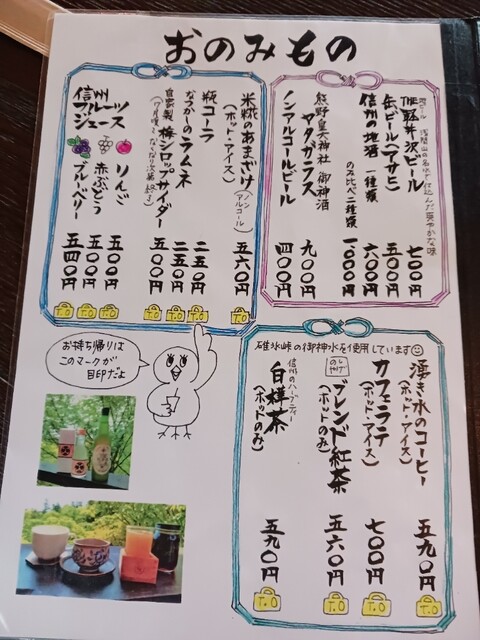 おのみもの
地ビール 浅間山の名水で仕込んだ爽やかな味
THE軽井沢ビール 七〇〇円
缶ビール(アサヒ) 五〇〇円
信州の地酒 一種類 六〇〇円
のみ比べ二種類 一〇〇〇円
熊野皇大神社 御神酒
ヤタガラス 九〇〇円
ノンアルコールビール 四〇〇円
米糀のあまざけ(ノンアルコール)
(ホット・アイス) 五六〇円 T.O
瓶コーラ 二五〇円 T.O
なつかしのラムネ 二五〇円 T.O
自家製 梅シロップサイダー 五〇〇円 T.O
信州フルーツジュース
りんご 五〇〇円 T.O
赤ぶどう 五〇〇円 T.O
ブルーベリー 五四〇円 T.O
お持ち帰りは
このマークが
目印だよ
碓氷峠の御神水を使用しています
湧き水のコーヒー
(ホット・アイス) 五九〇円 T.O
カフェラテ
(ホット・アイス) 七〇〇円 T.O
ブレンド紅茶
(ホットのみ) 五六〇円 T.O
信州のハーブティー
白樺茶
(ホットのみ) 五九〇円 T.O